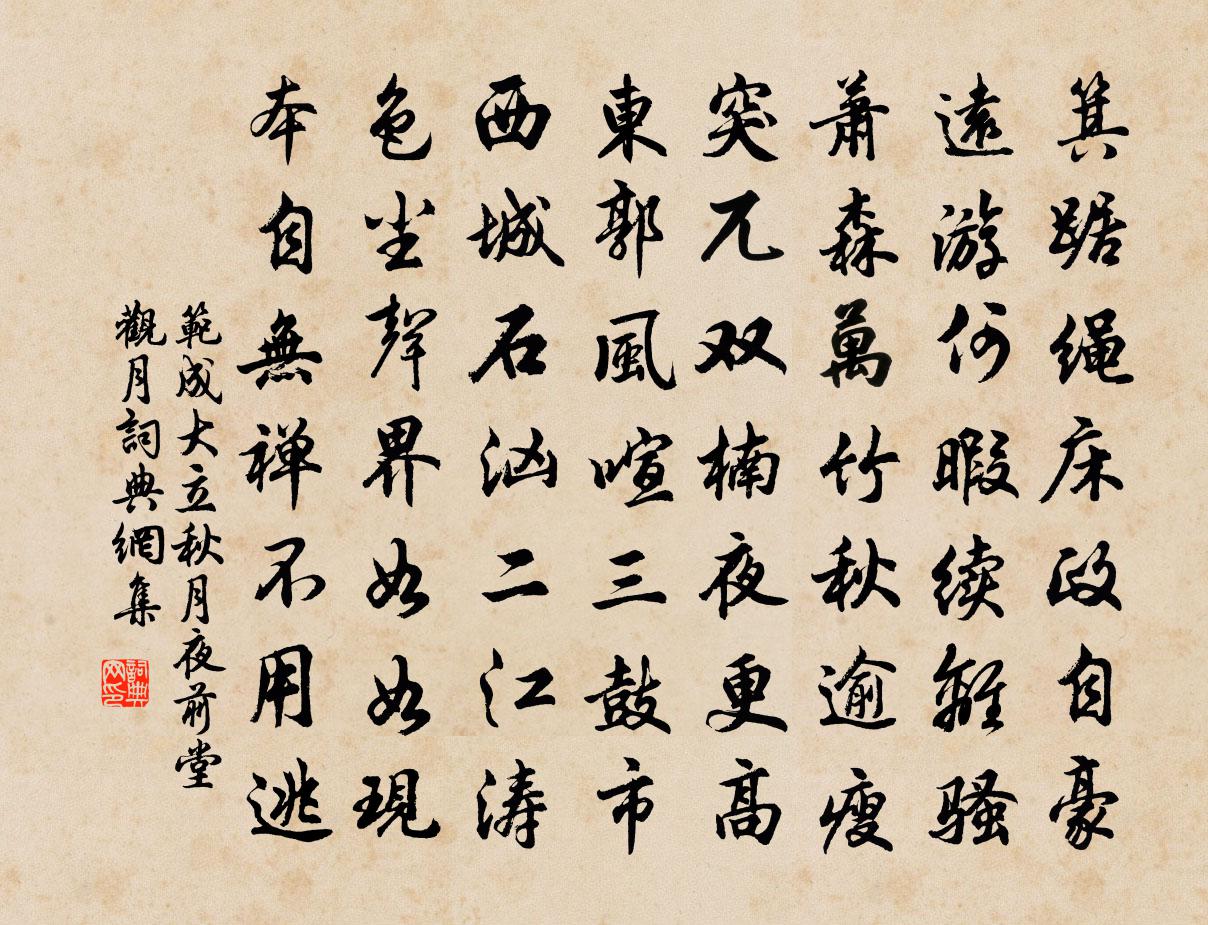 箕踞绳床政自豪
遠游何暇续離骚
萧森萬竹秋逾瘦
突兀双楠夜更高
東郭風喧三鼓市
西城石汹二江涛
色尘聲界如如現
本自無禅不用逃
範成大立秋月夜前堂
觀月詞典網集
詞典网印